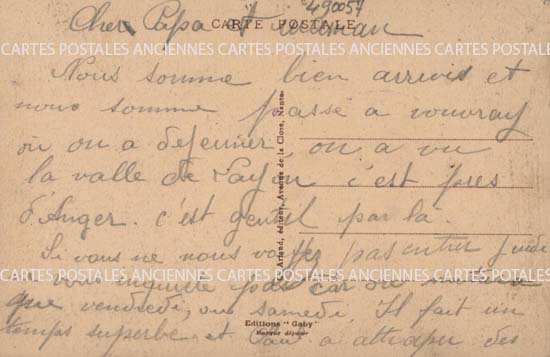 490057
CARTE POSTALE
Cher Papa et maman
Nous somme bien arrivés et
nous somme passé a vouvray
où on a dejeuner on a vu
la valle de Layon c'est pres
d'Anger. c'est gentil par la.
Si vous ne nous voyez pas entrer jeudi
ne vous inquiete pas car on
que vendredi, ou samedi. Il fait un
temps superbe et a attraper des
Artaud, éditeur, Avenue de la Close, Nantes
Editions "Gaby"
Marque déposée
CARTES POSTALES ANCIENNES CARTES POSTALES ANCIENNES CARTES POSTALES ANCIENNES
CARTES POSTALES ANCIENNES CARTES POSTALES ANCIENNES CARTES POSTALES ANCIENNES